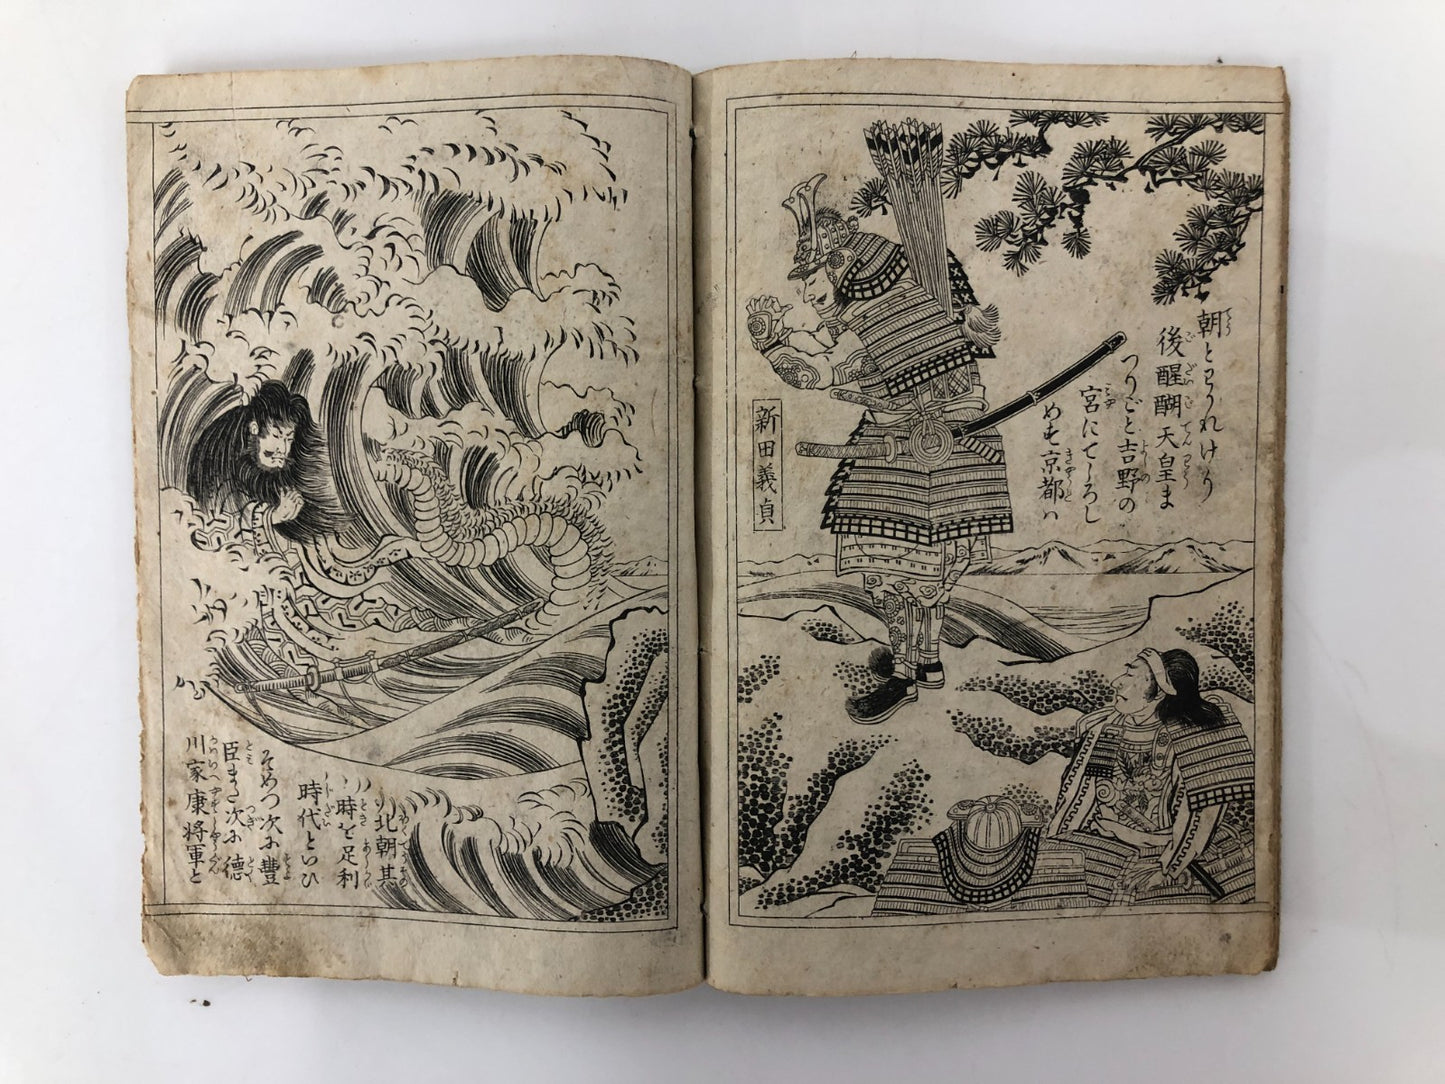 朝とわかれけり
後醍醐天皇ま
つりごと吉野の
宮にてしろし
めす京都ハ
新田義貞
北朝其
時を足利
時代といひ
そのつ次に豊
臣また次に徳
川家康将軍と